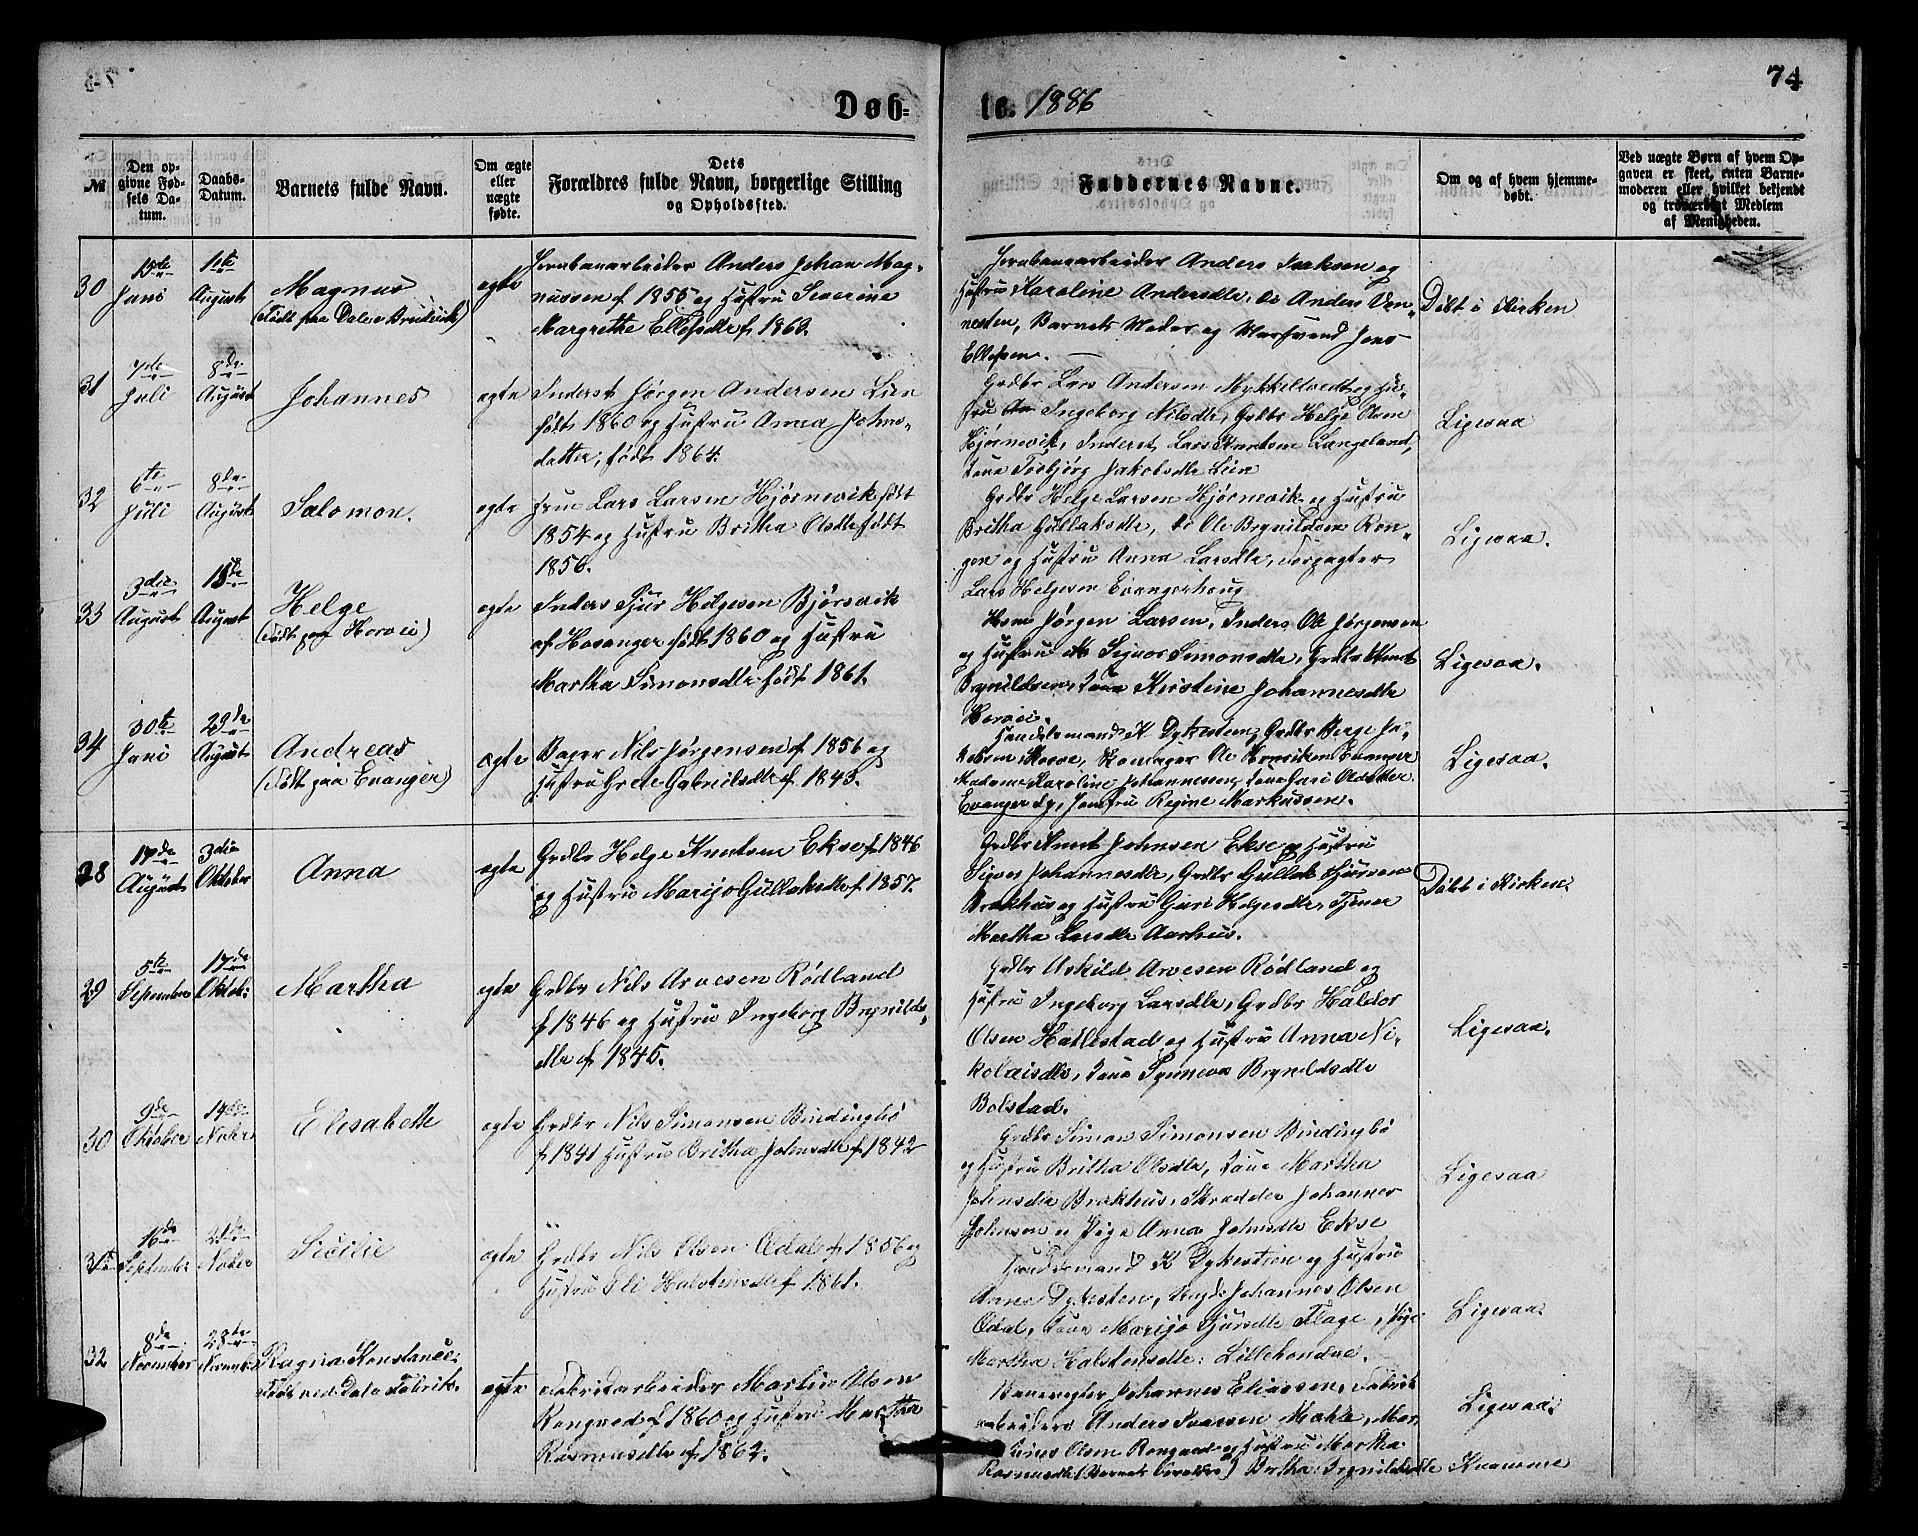 74
Døb=
te. 1886
№
Den opgivne Fødsels Datum.
Daabs-Datum.
Barnets fulde Navn.
Om ægte eller uægte fødte.
Dets Forældres fulde Navn, borgerlige Stilling og Opholdssted.
Faddernes Navne.
Om og af hvem hjemmedøbt.
Ved uægte Børn af hvem Opgaven er skeet, enten Barnemoderen eller hvilket bekjendt og troværdigt Medlem af Menigheden.
30
15de Juni
1ste August
Magnus
(Født paa Dale i Bruvik)
ægte
Jernbanarbeider Anders Johan Mag-
nussen f 1855 og Hustru Severine
Margrethe Ellefsdtr f. 1863.
Jernbanearbeider Anders Isaksen og
Hustru Karoline Andersdtr, do Anders Ven-
nesten, Barnets Moder og Ungsvend Jens
Ellefsen.
Døbt i Kirken
31
7de Juli
8de August
Johannes
ægte
Inderst Jørgen Andersen Lien
født 1860 og Hustru Anna Johns-
datter, født 1864.
Grdbr Lars Andersen Mykkeltvedt og Hu-
stru Ingeborg Nilsdtr, Grdbr Helge Olsen
Hjørnevik, Inderst Lars Knutsen Langeland,
Taus Torbjørg Jakobsdtr Lien
Ligesaa
32
6te Juli
8de August
Salomon.
ægte
Lars Larsen Hjørnevik født
1854 og Hustru Britha Olsdtr født
1856.
Grdbr Helge Larsen Hjørnevik og Hustru
Britha Gullaksdtr, do Ole Brynildsen Ron-
gen og Hustru Anna Larsdtr, Forpagter
Lars Helgesen Evangerhoug
Ligesaa.
33
3die August
15de August
Helge
(Født paa Horvei)
ægte
Inders Sjur Helgesen Bjørsvik
af Hosanger født 1860 og Hustru
Martha Simonsdtr født 1861.
Huus Jørgen Larsen, Inders Ole Jørgensen
og Hustru Signor Simonsdtr, Grdbr Knut
Brynildsen, Taus Kirstine Johannesdtr
Horvei.
Ligesaa.
34
30te Juni
29de August
Andreas
(Født paa Evanger)
ægte
Bager Nils Jørgensen f. 1856 og
Hustru Grete Gabrielsdtr f. 1843.
Handelsmand K Dykesteen, Grdbr Berge Ja-
kobsen Horve, Skomager Ole Henriksen Evanger
Madame Karoline Johannessen, Taus Kari Olsdatter
Evanger og Jomfru Regine Markussen.
Ligesaa.
28
17de August
3die Oktober
Anna
ægte
Grdbr Helge Knutsen Ekse f. 1846
og Hustru Marijo Gullaksdtr f. 1857.
Grdbr Knut Johnsen Ekse og Hustru
Signi Johannesdtr, Grdbr Gullak Sjursen
Brakhus og Hustru Guri Helgesdtr, Tjener
Martha Larsdtr Aarhus.
Døbt i Kirken.
29
5te September
17de Oktob:
Martha
ægte
Grdbr Nils Arvesen Rødland
f 1846 og Hustru Ingeborg Brynilds-
dtr f. 1845.
Grdbr Askild Arvesen Rødland og
Hustru Ingeborg Larsdtr, Grdbr Haldor
Olsen Hatlestad og Hustru Anna Ni-
kolaisdtr, Taus Synneva Brynildsdtr
Bolstad.
Ligesaa.
30
9de Oktober
14de Novbr
Elisabeth
ægte
Grdbr Nils Simonsen Bindingbø
f. 1841 Hustru Britha Johnsdtr f. 1842
Grdbr Simon Simonsen Bindingbø
og Hustru Britha Olsdtr, Taus Martha
Johnsdtr Brakhus, Skrædder Johannes
Johnsen og Pige Anna Johnsdtr Ekse
Ligesaa
31
16de September
21de Novber
Sicilie
ægte
Grdbr Nils Olsen Ødal f. 1856 og
Hustru Eli Halstensdtr f 1861.
Handelsmand K Dykesteen og Hustru
Anna Dykesten, Ungk: Johannes Olsen
Ødal, Taus Marijo Sjursdtr Flage, Pige
Martha Halstensdtr Lillehondve.
Ligesaa.
32
8de November
28de Novemb.
Ragna Konstance.
Født ved Dale Fabrik.
ægte
Fabrikarbeider Martin Olsen
Rongved f 1860 og Hustru Martha
Rasmusdtr f. 1862.
Banevogter Johannes Eliassen, Fabrik
arbeider Anders Ivarsen Mahle, Mar-
tinus Olsen Rongved og Hustru Martha
Rasmusdtr (Barnets Forældre) Britha Brynildsdtr Kvamme
Ligesaa.